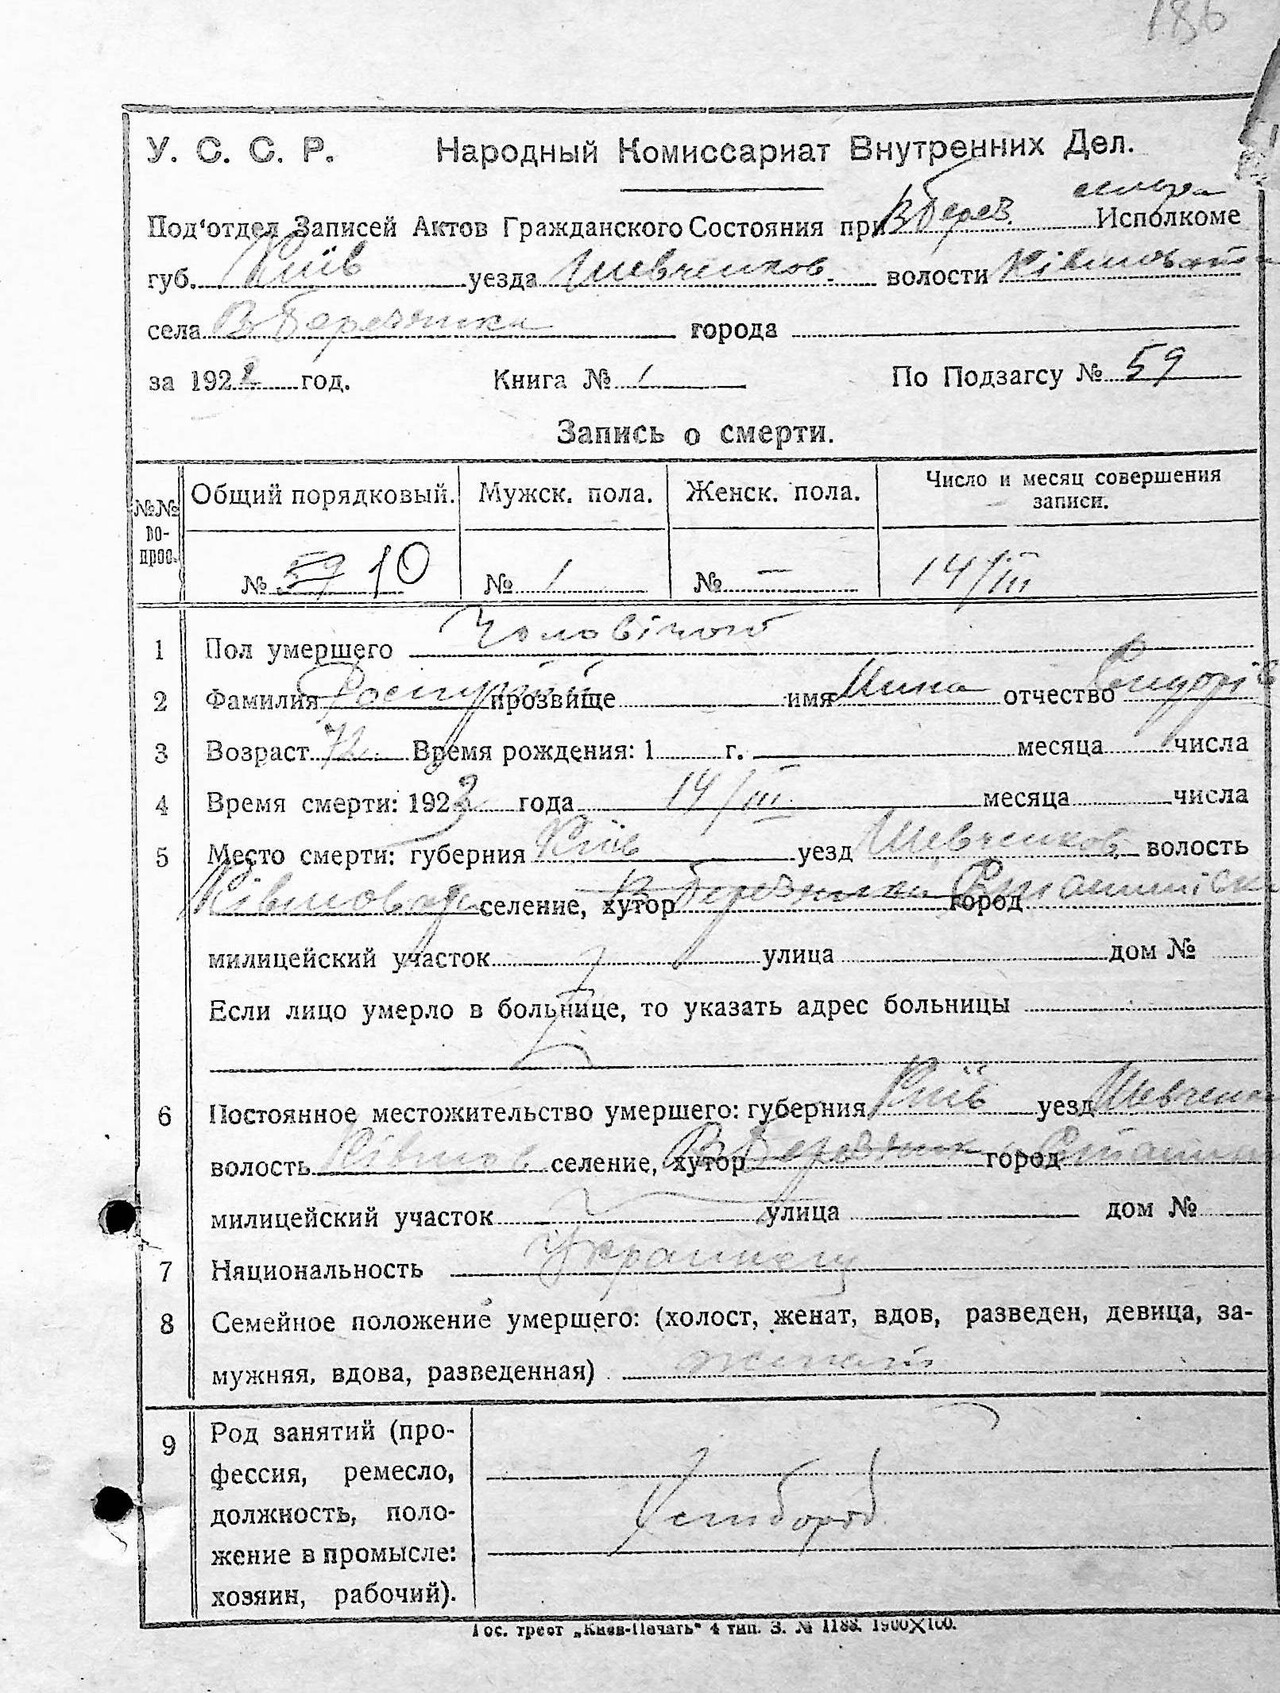 186
У. С. С. Р. Народный Комиссариат Внутренних Дел.
Под'отдел Записей Актов Гражданского Состояния при В Берез. Исполкоме
губ. Київ уезда Шевченков. волости
села В Березянка города
за 1922 год. Книга № 1 По Подзагсу № 59
Запись о смерти.
№№ во-прос. Общий порядковый. Мужск. пола. Женск. пола. Число и месяц совершения записи.
№ 59 10 № 1 № — 14/III
1 Пол умершего Чоловічого
2 Фамилия прозвище имя Мина отчество
3 Возраст 72 Время рождения: 1 г. месяца числа
4 Время смерти: 1923 года 14/III месяца числа
5 Место смерти: губерния Київ уезд Шевченков. волость
селение, хутор В Березянка город
милицейский участок улица дом №
Если лицо умерло в больнице, то указать адрес больницы
6 Постоянное местожительство умершего: губерния Київ уезд Шевченков
волость селение, хутор В Березянка город
милицейский участок улица дом №
7 Национальность Украинец
8 Семейное положение умершего: (холост, женат, вдов, разведен, девица, за-
мужняя, вдова, разведенная) женат
9 Род занятий (про-
фессия, ремесло,
должность, поло-
жение в промысле:
хозяин, рабочий).
Хлибороб
Гос. трест „Киев-Печать" 4 тип. З. № 1188. 1900×100.